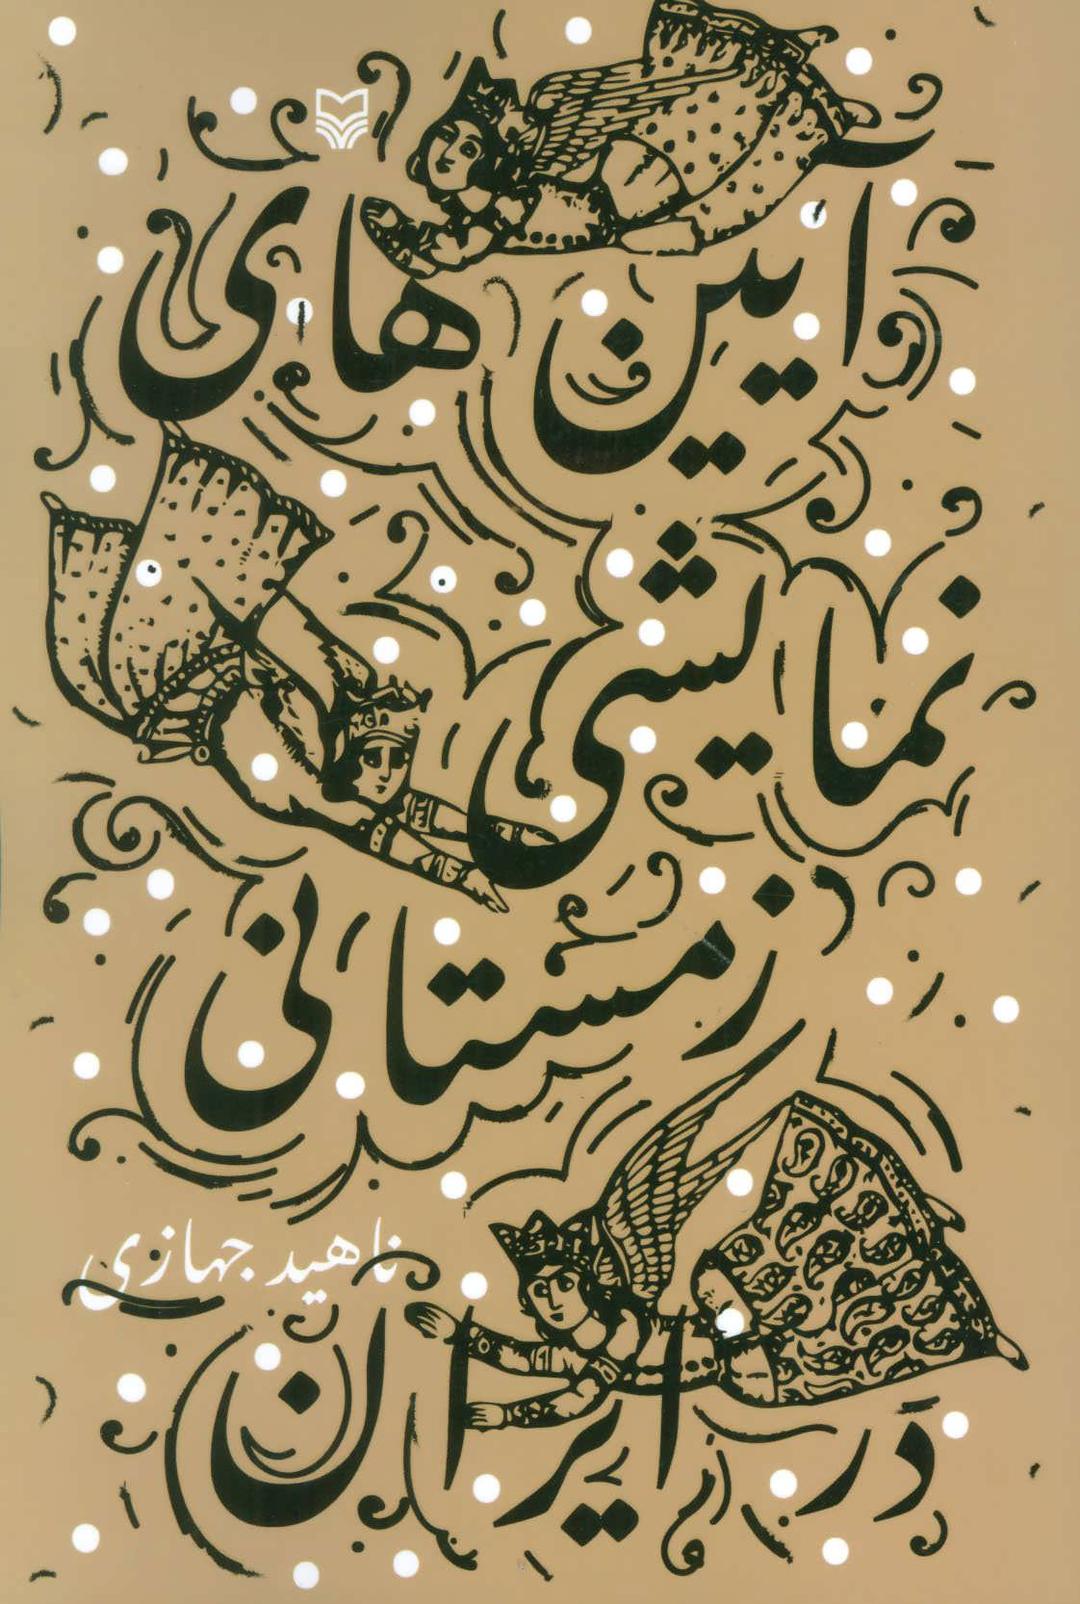 آیین های
نمایشی
زمستانی
ناهید جهازی
در ایران